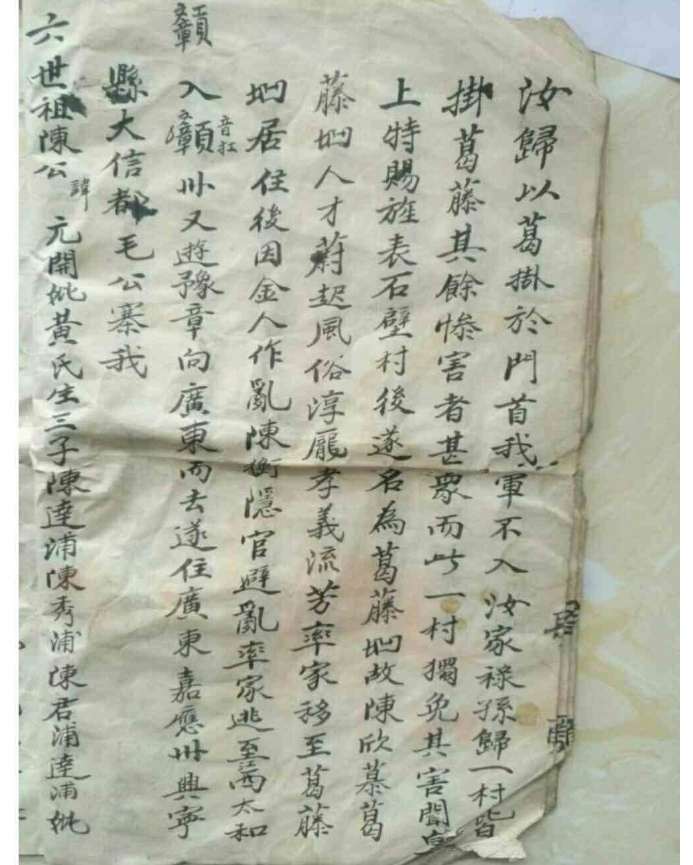 汝歸以葛掛於門首我軍不入汝家祿孫歸一村皆
掛葛藤其餘慘害者甚眾而此一村獨免其害聞
上特賜旌表石壁村後遂名為葛藤地故陳欣慕葛
藤地人才蔚起風俗淳龐孝義流芳率家移至葛藤
地居住後因金人作亂陳衡隱官避亂率家逃至江西太和
入贛音紅州又遊豫章向廣東而去遂住廣東嘉應州興寧
縣大信都毛公寨我
六世祖陳公諱元開妣黃氏生三子陳達浦陳秀浦陳君浦達浦妣